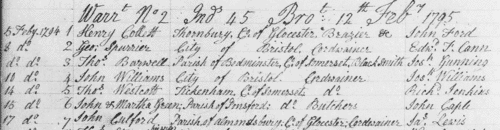 Warrt No 2 Ind 45 Brot 12th Feby 1795
5 Feby 1794 1 Henry Collett Thornbury, C. of Glocester Brazier &c John Ford
8 do 2 Geo: Spurrier City of Bristol, Cordwainer Edwd T. Cann
do do 3 Thos Barwell Parish of Bedminster, C. of Somerset, Black Smith Jos: Gunning
10 do 4 John Williams City of Bristol Cordwainer Jos: Williams
14 do 5 Thos Westcott Tickenham, C. of Somerset do Richd Jenkins
16 do 6 John & Martha Green; Parish of Do Butchers John Caple
17 do 7 John Parish of Almondsbury, C. of Glocester: Cordwainer Jas Lewis